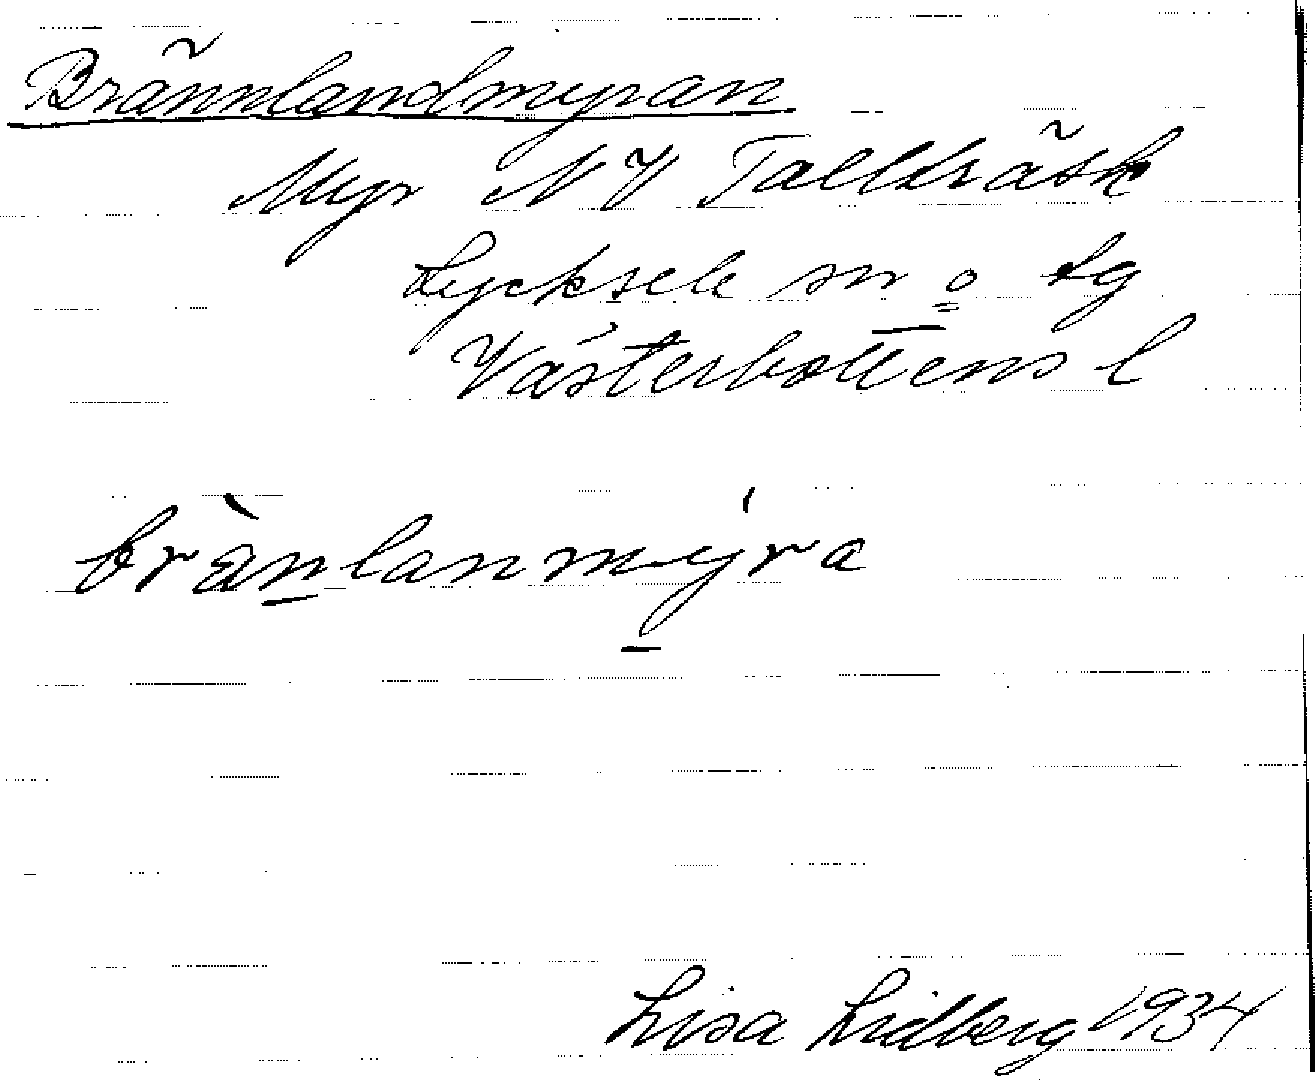 Brännlandmyran
Myr NV Tallträsk
Lycksele sn o lg
Västerbottens l
brànlanmýra
Lisa Lidberg 1934